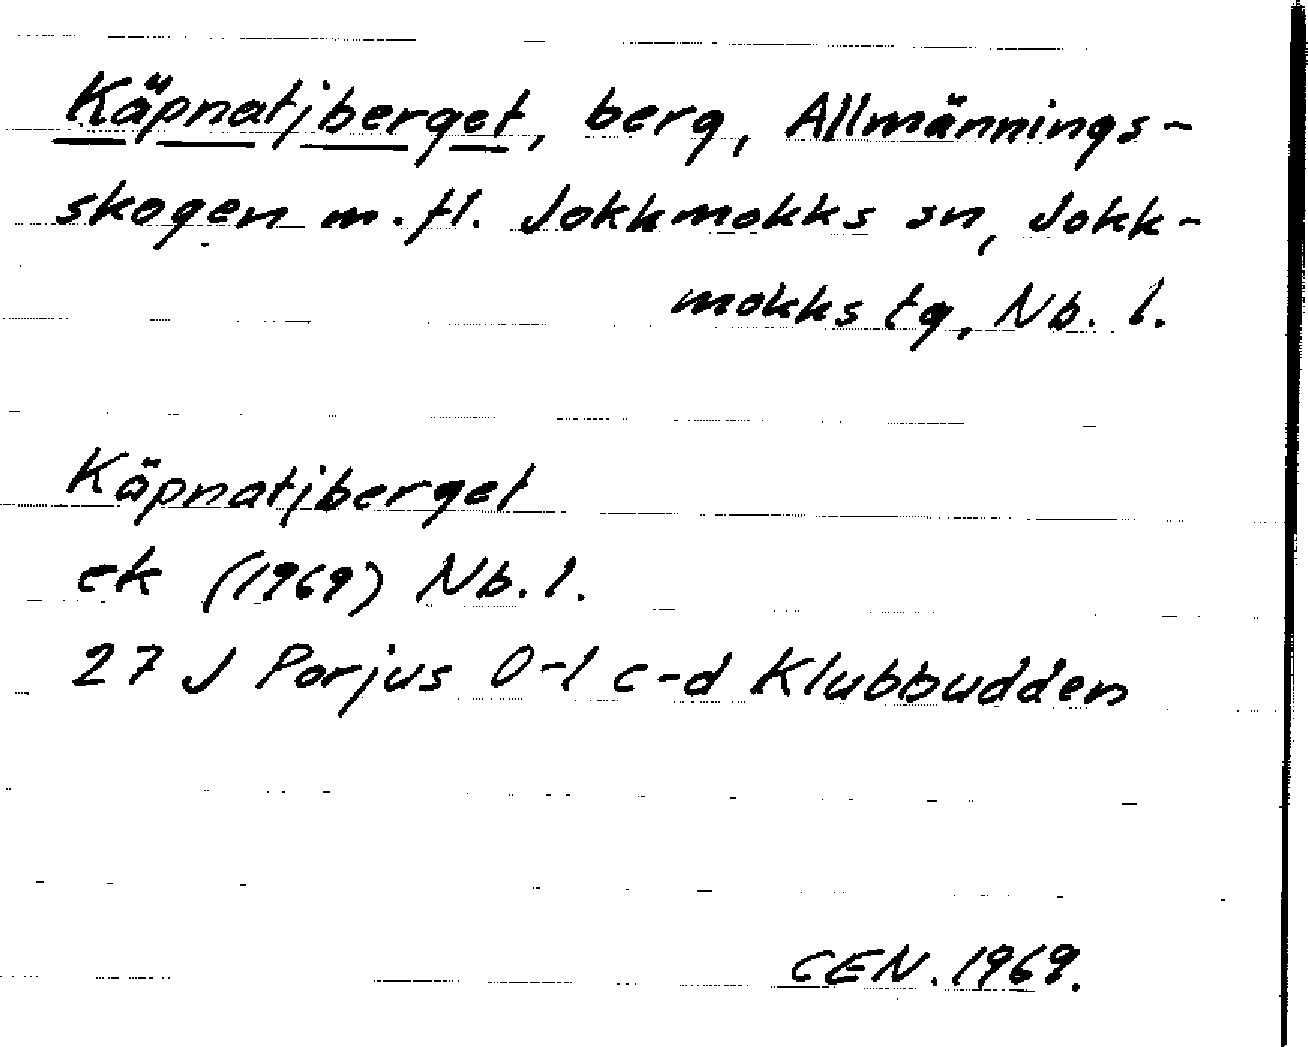 Käpnatjberget, berg, Allmännings-
skogen m.fl. Jokkmokks sn, Jokk-
mokks tg, Nb. l.
Käpnatjberget
ek (1969) Nb. l.
27 J Porjus 0-1 c-d Klubbudden
CEN. 1969.